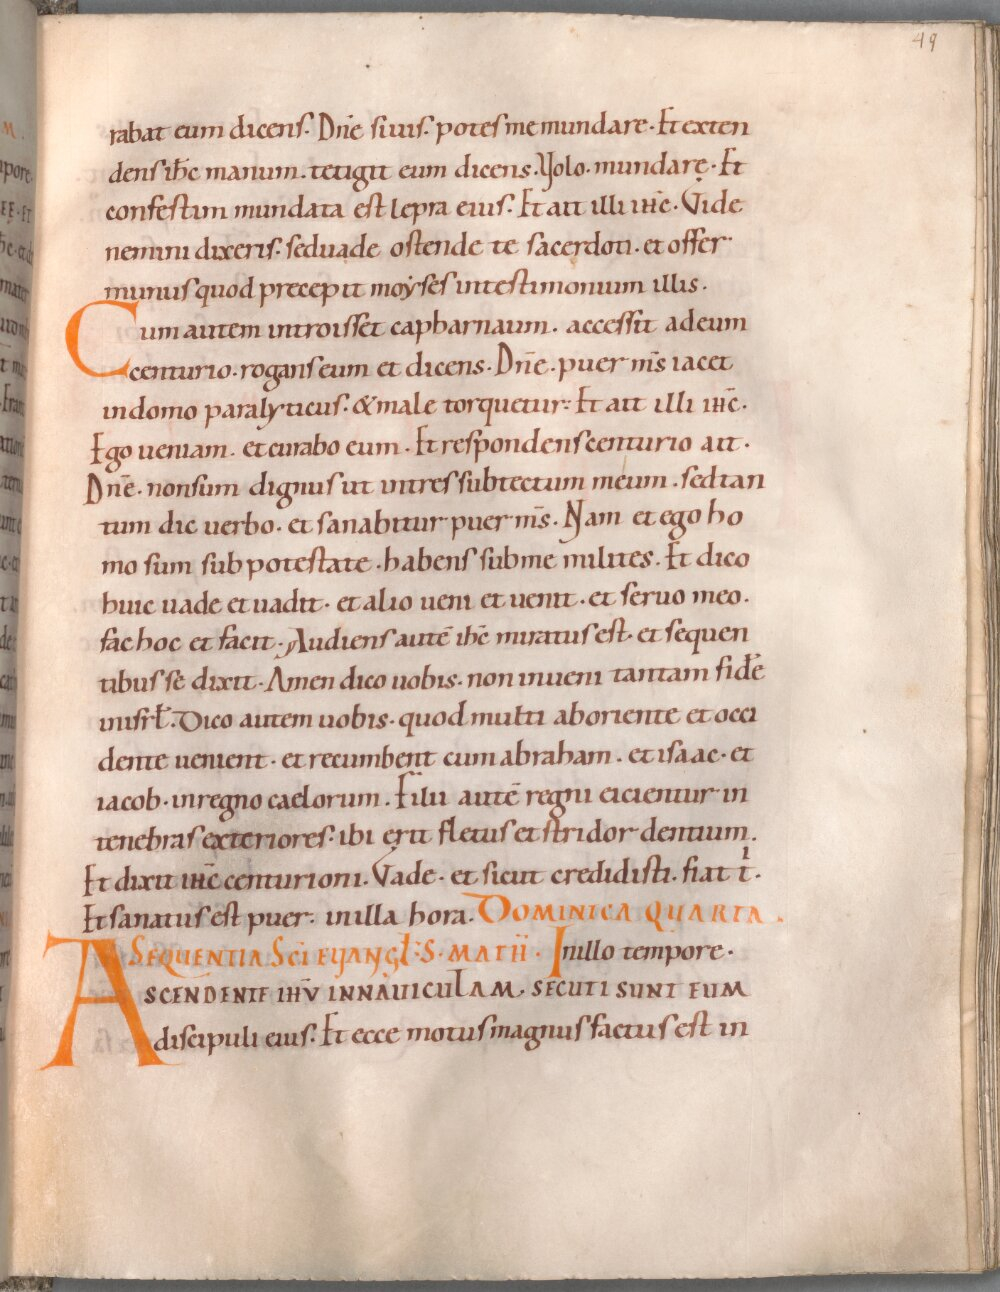 49
rabat eum dicens. Dn̄e si uis. potes me mundare. Et exten
dens ih̄c manum. tetigit eum dicens. Volo. mundarę. Et
confestim mundata est lepra eius. Et ait illi ih̄c. Vide
nemini dixeris. sed uade ostende te sacerdoti. et offer
munus quod precepit moyses in testimonium illis.
Cum autem introisset capharnaum. accessit ad eum
centurio. rogans eum et dicens. Dn̄e. puer m̄s iacet
in domo paralyticus. & male torquetur. Et ait illi ih̄c.
Ego ueniam. et curabo eum. Et respondens centurio ait.
Dn̄e. non sum dignus ut intres sub tectum meum. sed tan
tum dic uerbo. et sanabitur puer m̄s. Nam et ego ho
mo sum sub potestate. habens sub me milites. Et dico
huic uade et uadit. et alio ueni et uenit. et seruo meo.
fac hoc et facit. Audiens autē ih̄c miratus est. et sequen
tibus se dixit. Amen dico uobis. non inueni tantam fidē
in isrl̄. Dico autem uobis. quod multi ab oriente et occi
dente uenient. et recumbent cum abraham. et isaac. et
iacob. in regno caelorum. Filii autē regni eicientur in
tenebras exteriores. ibi erit fletus et stridor dentium.
Et dixit ih̄c centurioni. Vade. et sicut credidisti. fiat tⁱ.
Et sanatus est puer. in illa hora. DOMINICA QUARTA.
SEQUENTIA SC̄I EVANGL̄. S. MATH̄. In illo tempore.
ASCENDENTE IH̄V IN NAVICULAM. SECUTI SUNT EUM
discipuli eius. Et ecce motus magnus factus est in